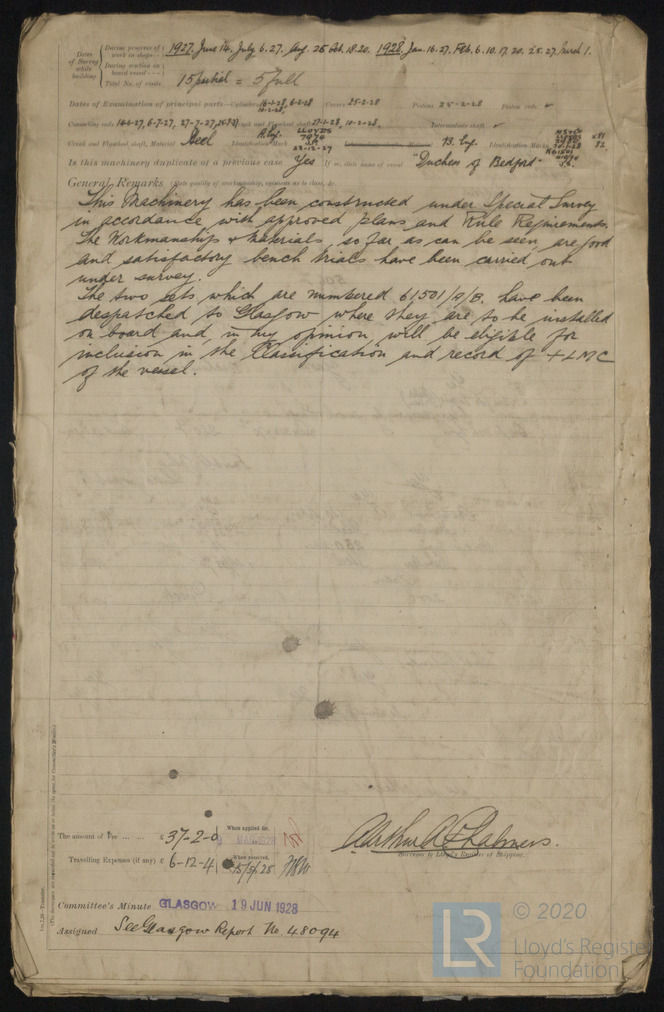 Dates of Survey while building
During progress of work in shops - - 1927. June 14. July 6. 27. Aug. 25 Oct. 18. 20. 1928. Jan. 16. 27. Feb. 6. 10. 17. 20. 25. 27. March 1.
During erection on board vessel - - -
Total No. of visits 15 partial = 5 full
Dates of Examination of principal parts—Cylinders 6-2-28 Covers 25-2-28 Pistons 25-2-28 Piston rods ✓
Connecting rods 14-6-27, 6-7-27, 27-7-27, Crank and Flywheel shafts 27-1-28, 10-2-28. Intermediate shaft ✓
Crank and Flywheel shaft, Material Steel Identification Mark LLOYDS 7070 22-12-27 Identification Mark
Is this machinery duplicate of a previous case Yes If so, state name of vessel "Duchess of Bedford"
General Remarks (State quality of workmanship, opinions as to class, &c.
This Machinery has been constructed under Special Survey
in accordance with approved plans and Rule Requirements.
The Workmanship & Materials, so far as can be seen, are good
and satisfactory bench trials have been carried out
under survey.
The two sets which are numbered 61501/A/B. have been
despatched to Glasgow where they are to be installed
on board and, in my opinion, will be eligible for
inclusion in the Classification and record of + LMC
of the vessel.
The amount of Fee ... ... £ 37-2-0 When applied for, MAR 1928
Travelling Expenses (if any) £ 6-12-4 When received, 15/5/28
Arthur A Chalmers.
Surveyor to Lloyd's Register of Shipping.
Committee's Minute GLASGOW 19 JUN 1928
Assigned See Glasgow Report No. 48094
LR
© 2020
Lloyd's Register
Foundation